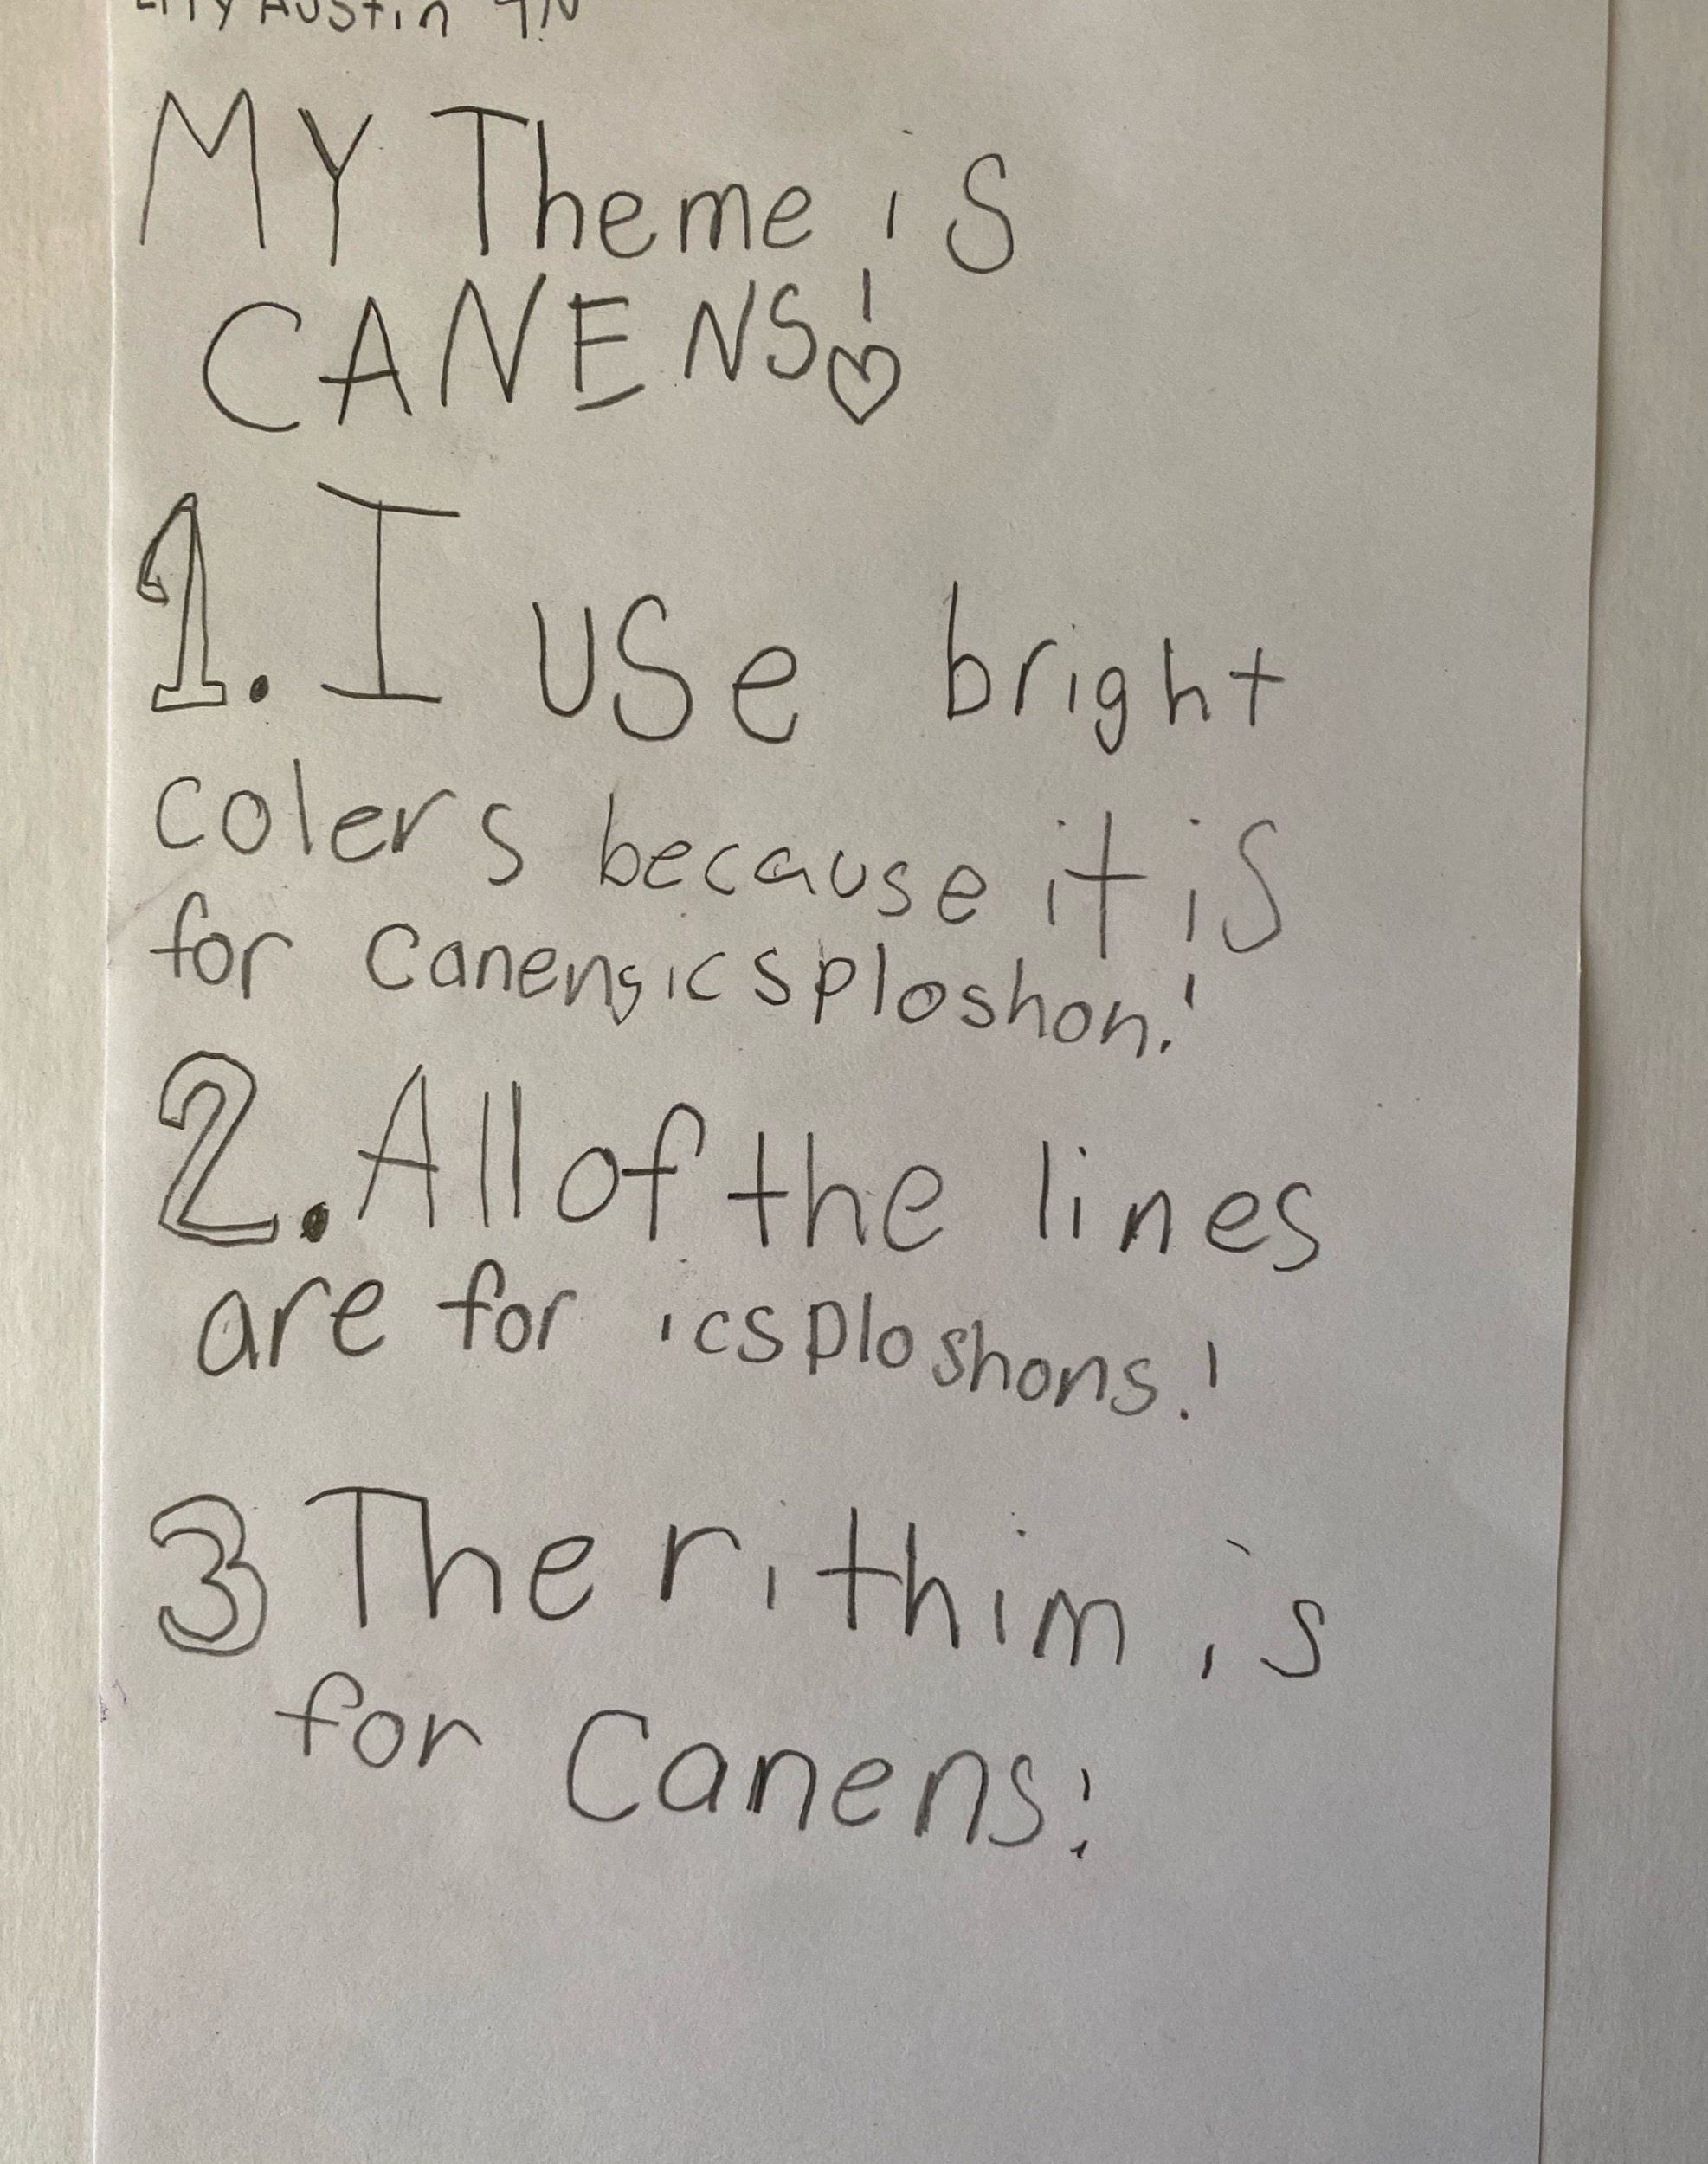 Austin
MY Theme is
CANENS!
1. I use bright
colers because it is
for canensicsploshon!
2. All of the lines
are for icsploshons!
3 The rithim is
for Canens!